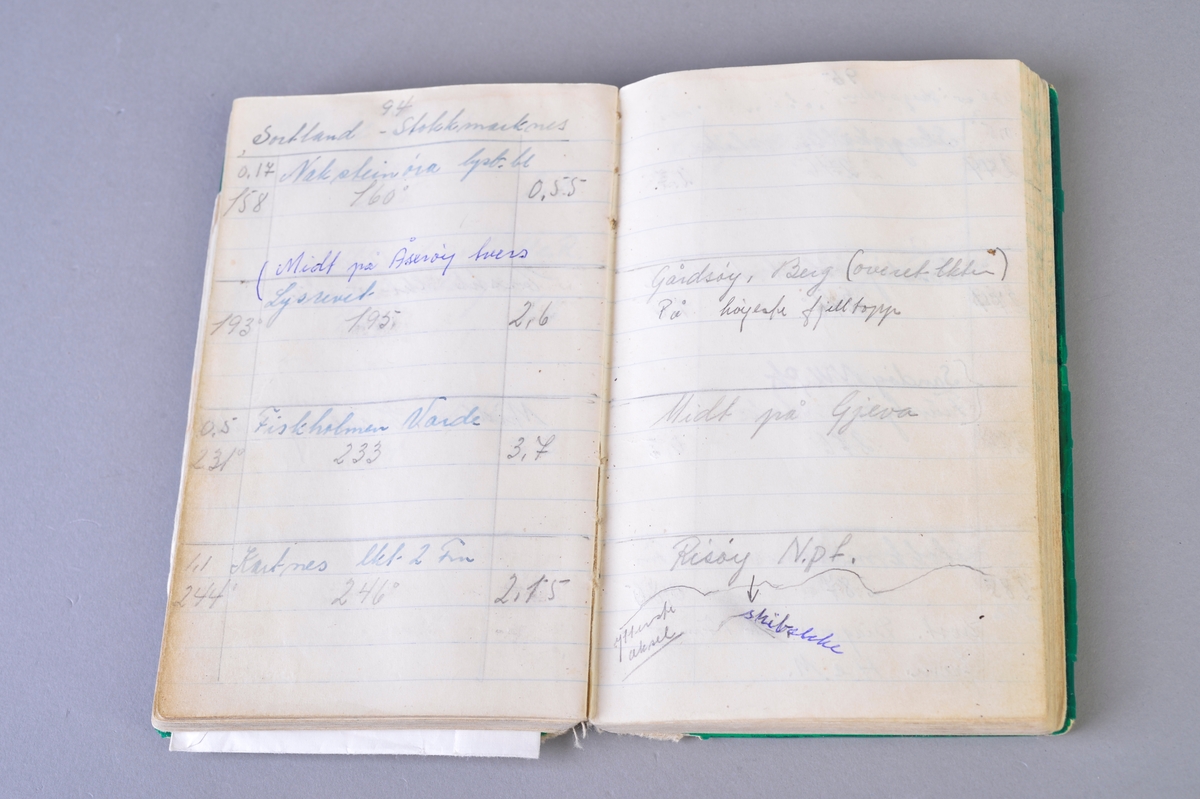 94
Sortland - Stokkmarknes
0.17 Naksteinøra lyst. bl
158 160° 0,55
(Midt på Åserøy tvers
Lysrevet
193° 195. 2,6
0.5 Fiskholmen Varde
231° 233 3,7
1,1 lkt 2 Frn
244° 246° 2,15
95
Gårdsøy, Berg (overet lkter)
På høyeste fjelltopp
Midt på Gjeva
Risøy N.pt.
ytterste
aksel
skibakke